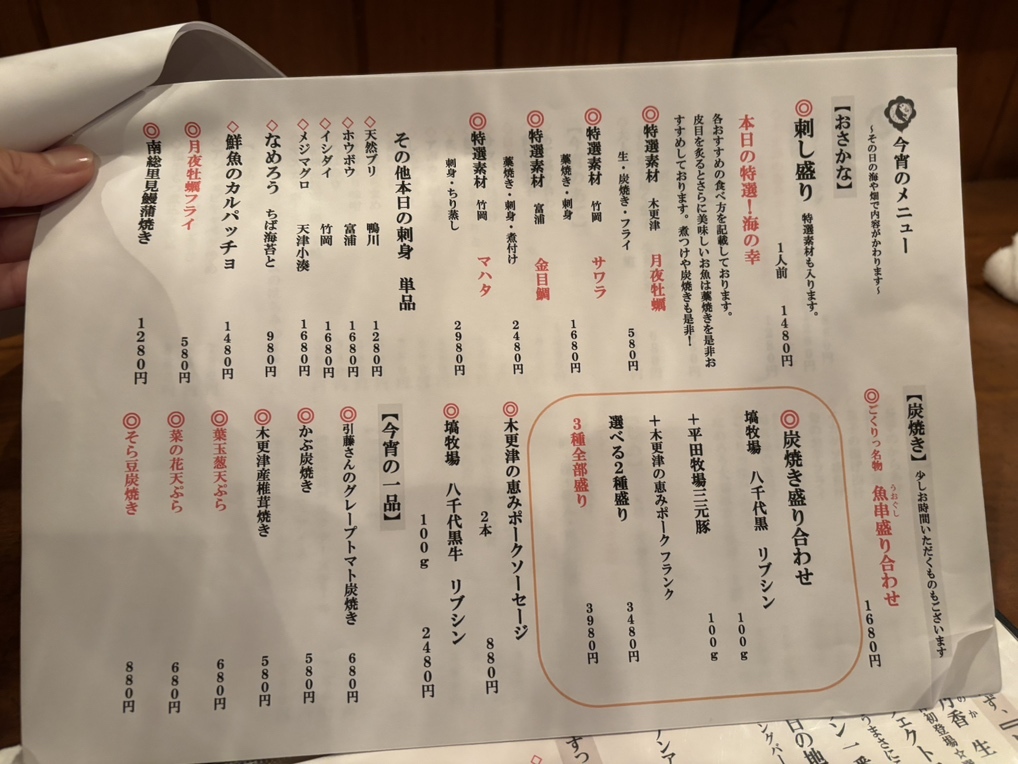 今宵のメニュー
～その日の海や畑で内容がかわります～
【おさかな】
◎刺し盛り 特選素材も入ります。
1人前 1480円
本日の特選！海の幸
各おすすめの食べ方を記載しております。
皮目を炙るとさらに美味しいお魚は藁焼きを是非お
すすめしております。煮つけや炭焼きも是非！
◎特選素材 木更津 月夜牡蠣
生・炭焼き・フライ 580円
◎特選素材 竹岡 サワラ
藁焼き・刺身 1680円
◎特選素材 富浦 金目鯛
藁焼き・刺身・煮付け 2480円
◎特選素材 竹岡 マハタ
刺身・ちり蒸し 2980円
その他本日の刺身 単品
◇天然ブリ 鴨川 1280円
◇ホウボウ 富浦 1680円
◇イシダイ 竹岡 1680円
◇メジマグロ 天津小湊 1680円
◇なめろう ちば海苔と 980円
◇鮮魚のカルパッチョ 1480円
◎月夜牡蠣フライ 580円
◎南総里見鰻蒲焼き 1280円
【炭焼き】少しお時間いただくものもございます
◎ごくりっ名物 魚串盛り合わせ 1680円
うおぐし
◎炭焼き盛り合わせ
塙牧場 八千代黒 リブシン 100g
＋平田牧場三元豚 100g
＋木更津の恵みポーク フランク
選べる2種盛り 3480円
3種全部盛り 3980円
◎木更津の恵みポークソーセージ
2本 880円
◎塙牧場 八千代黒牛 リブシン
100g 2480円
【今宵の一品】
◎引藤さんのグレープトマト炭焼き 680円
◎かぶ炭焼き 580円
◎木更津産椎茸焼き 580円
◎葉玉葱天ぷら 680円
◎菜の花天ぷら 680円
◎そら豆炭焼き 880円